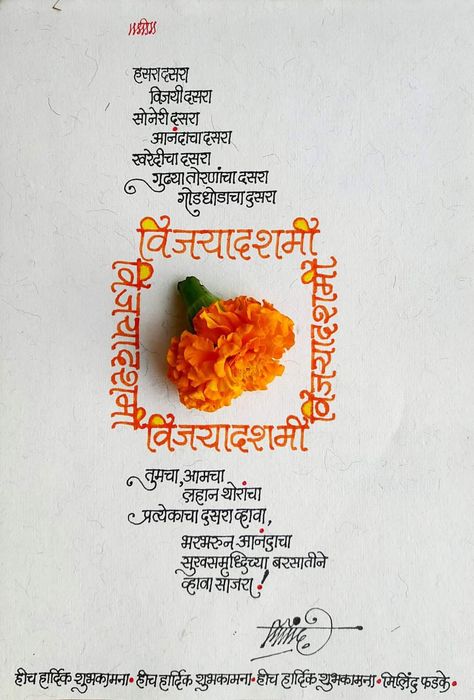 हसरा दसरा
विजयी दसरा
सोनेरी दसरा
आनंदाचा दसरा
खरेदीचा दसरा
गुढया तोरणांचा दसरा
गोडधोडाचा दुसरा
विजयादशमी
विजयादशमी
विजयादशमी
विजयादशमी
तुमचा, आमचा
लहान थोरांचा
प्रत्येकाचा दुसरा व्हावा,
भरभरुन आनंदाचा
सुखसमृध्दिच्या बरसातीने
व्हावा साजरा!
मिलिंद
हीच हार्दिक शुभकामना • हीच हार्दिक शुभकामना • हीच हार्दिक शुभकामना • मिलिंद फडके •